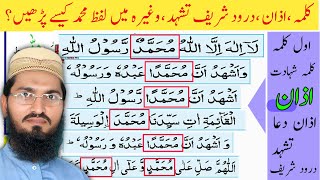 کلمہ، اذان، درود شریف تشہد، وغیرہ میں لفظ محمد کیسے پڑھیں؟
لَآ اِلٰهَ اِلَّا اللّٰهُ مُحَمَّدٌ رَّسُوْلُ اللّٰهِ
وَاَشْهَدُ اَنَّ مُحَمَّدًا عَبْدُهٗ وَرَسُوْلُهٗ
اَشْهَدُ اَنَّ مُحَمَّدًا رَّسُوْلُ اللّٰهِ ط
الْقَآئِمَةِ اٰتِ سَيِّدَنَا مُحَمَّدَ الْوَسِيْلَةَ
وَ اَشْهَدُ اَنَّ مُحَمَّدًا عَبْدُهٗ وَ رَسُوْلُهٗ ط
اَللّٰهُمَّ صَلِّ عَلٰى مُحَمَّدٍ وَّعَلٰٓى اٰلِ مُحَمَّدٍ
اول کلمہ
کلمہ شہادت
اذان
اذان دعا
تشہد
درود شریف